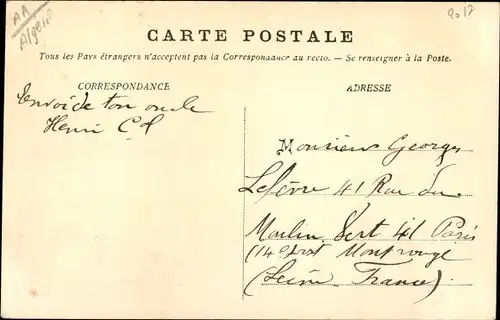 AA
Algérie
2017
CARTE POSTALE
Tous les Pays étrangers n'acceptent pas la Correspondance au recto. — Se renseigner à la Poste.
CORRESPONDANCE
ADRESSE
envoi de ton oncle
Henri
Monsieur Georges
Lefèvre 41 Rue du
Moulin Vert 41 Paris
(14e Montrouge
(Seine France)